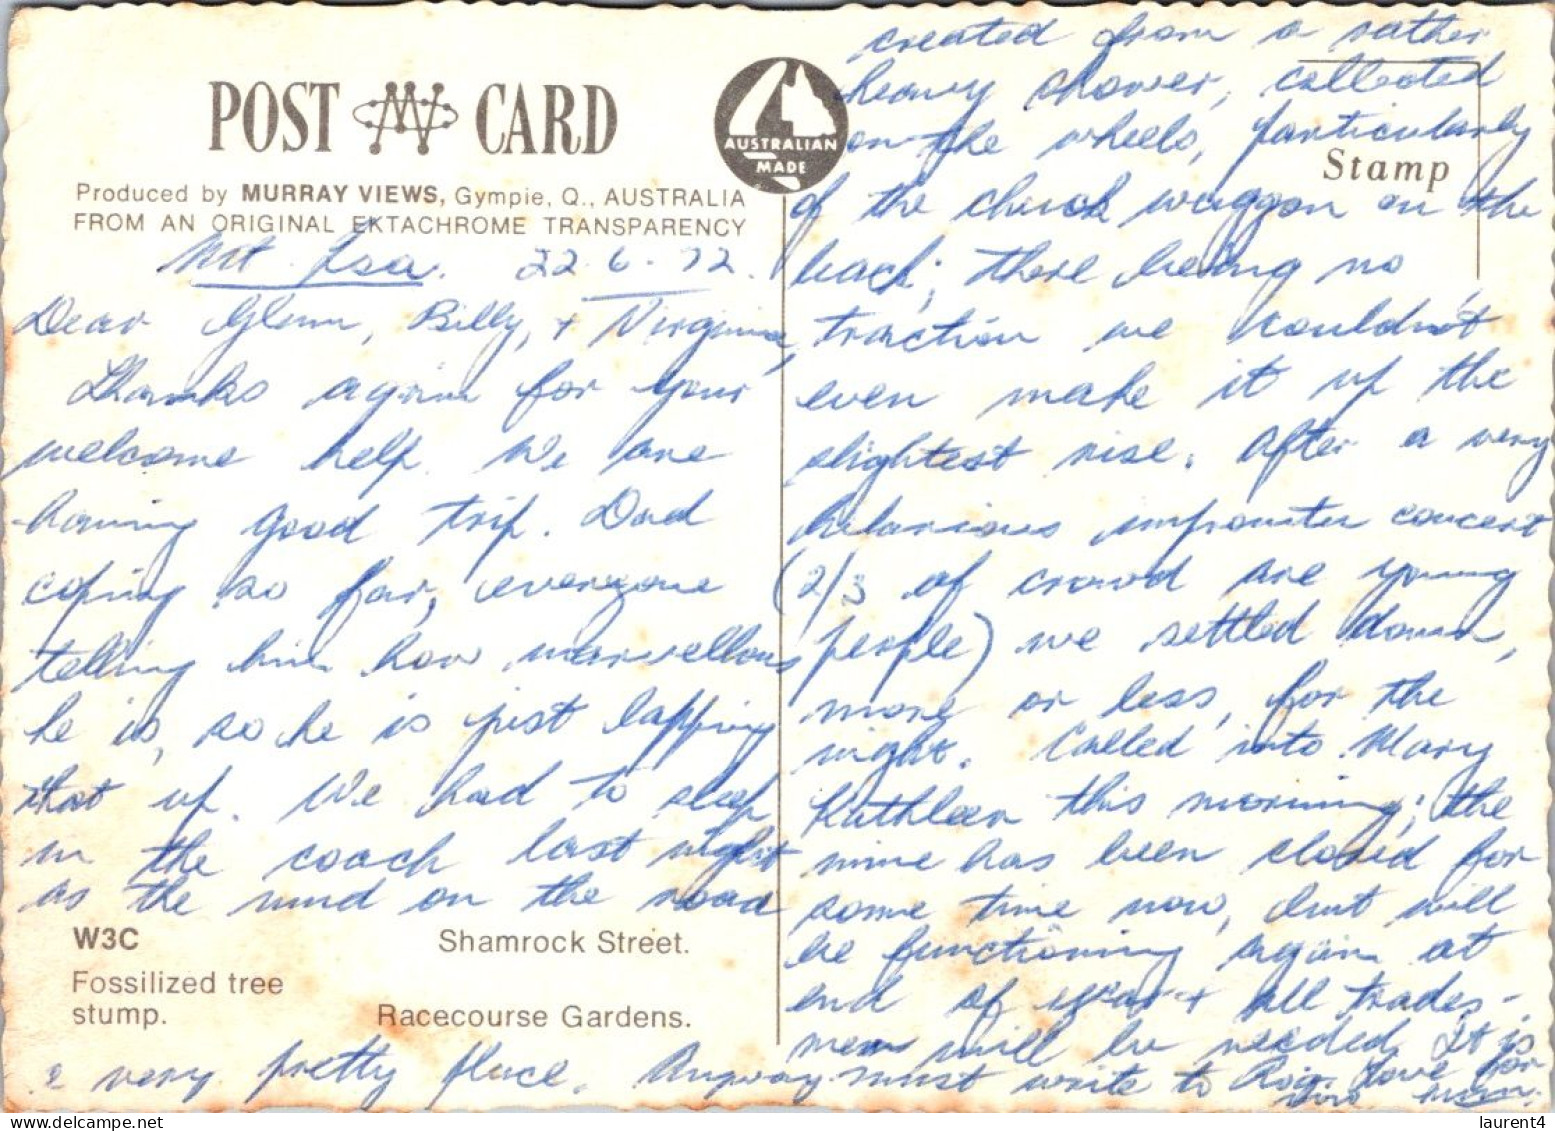 POST CARD
AUSTRALIAN
MADE
Produced by MURRAY VIEWS, Gympie, Q., AUSTRALIA
FROM AN ORIGINAL EKTACHROME TRANSPARENCY
Stamp
Mt Isa. 22.6.72.
Dear Glenn, Billy, + Virginia,
Thanks again for your
welcome help. We are
having good trip. Dad
coping so far, everyone
telling him how marvellous
he is, so he is just lapping
that up. We had to sleep
in the coach last night
as the mud on the road
W3C
Shamrock Street.
Fossilized tree
stump.
Racecourse Gardens.
created from a rather
heavy shower, collected
on the wheels, particularly
of the chuck waggon on the
back; there being no
traction we couldn't
even make it up the
slightest rise. After a very
hilarious impromtu concert
(2/3 of crowd are young
people) we settled down,
more or less, for the
night. Called into Mary
Kathleen this morning; the
mine has been closed for
some time now, but will
be functioning again at
end of year + all trades-
men will be needed. It is
a very pretty place. Anyway must write to Love
laurent4